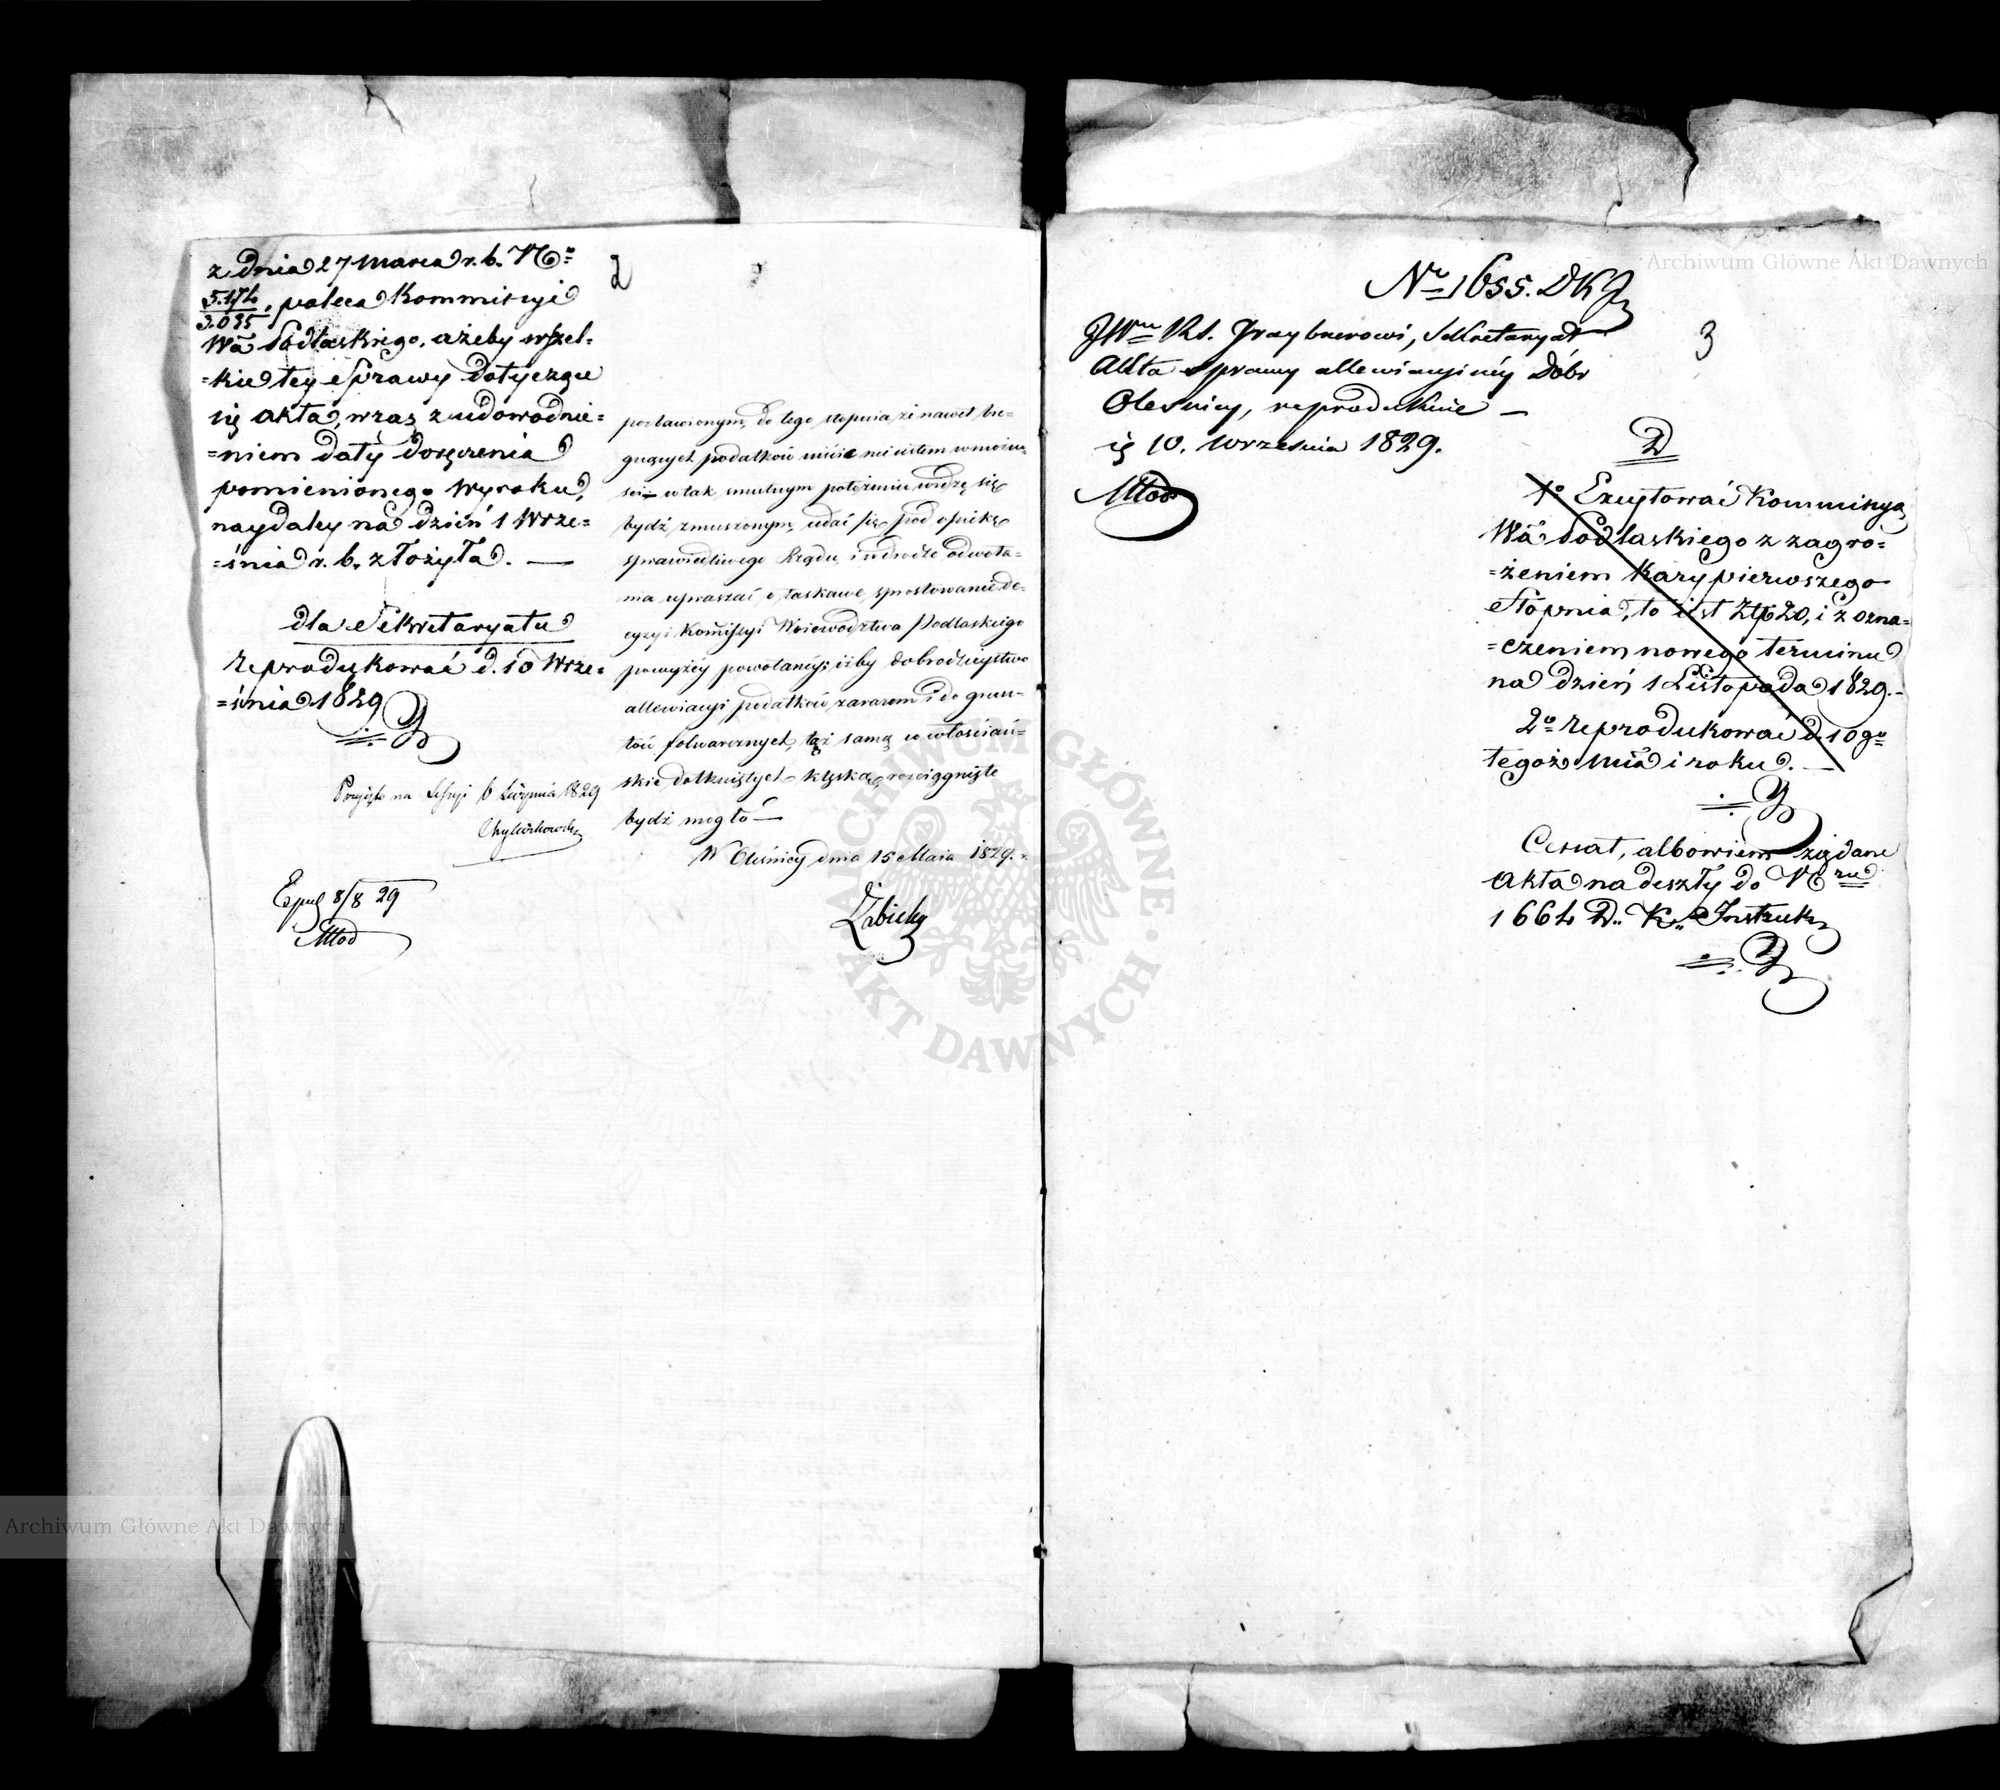 z dnia 27 Marca r. b. No
5.174
3.035, poleca Kommissyi
Wa Podlaskiego, ażeby wszel=
=kie tey Sprawy dotyczące
się Akta, wraz z udowodnie=
=niem daty doręczenia
pomienionego Wyroku,
naydaley na dzień 1 Wrze=
=śnia r. b. złożyła. —
dla Sekretaryatu
reprodukować d. 10 Wrze=
=śnia 1829
Przyjęto na Sessyi 6 Sierpnia 1829
Exped 8/8 29
Młod
2
postawionym, do tego stopnia, że nawet bie=
gnących podatków uiścić nie iestem w możno
ści — w tak smutnym położeniu widzę się
bydź zmuszonym, udać się pod opiekę
sprawiedliwego Rządu, i w drodze odwoła=
nia upraszać, o łaskawe sprostowanie de=
cyzyi Kommissyi Woiewództwa Podlaskiego
powyżey powołaney; iżby dobrodzieystwo
allewiacyi podatków zarazem i do grun=
tów folwarcznych, tąż samą co włościań=
skie dotkniętych klęską, rosciągnięte
bydź mogło —
W Oleśnicy dnia 15 Maia 1829. r.
Żabicky
Archiwum Główne Akt Dawnych
Nr 1655. DKJ
3
JWu RS. Graybnerowi, Sekretaryat
Akta sprawy allewiacyiney Dóbr
Oleśnicy, reprodukuie —
ię 10. Września 1829.
Młod
D
1o Excytować Kommissyą
Wa Podlaskiego z zagro=
=żeniem kary pierwszego
Stopnia, to iest Złp 20, i z ozna=
=czeniem nowego terminu
na dzień 1 Listopada 1829.-
2o reprodukować d. 10go
tegoż mca i roku. —
Cessat, albowiem żądane
Akta nadeszły do Nru
1664 D. K. Instruk
ARCHIWUM GŁÓWNE · AKT DAWNYCH ·
Archiwum Główne Akt Dawnych